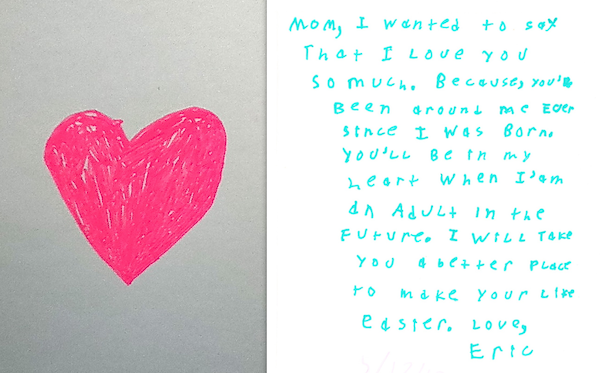 Mom, I wanted to say
That I Love you
so much. Because, you've
Been around me Ever
since I was Born.
you'll Be in my
heart when I'am
an Adult in the
Future. I will Take
you a better Place
to make your Life
easter. Love,
Eric